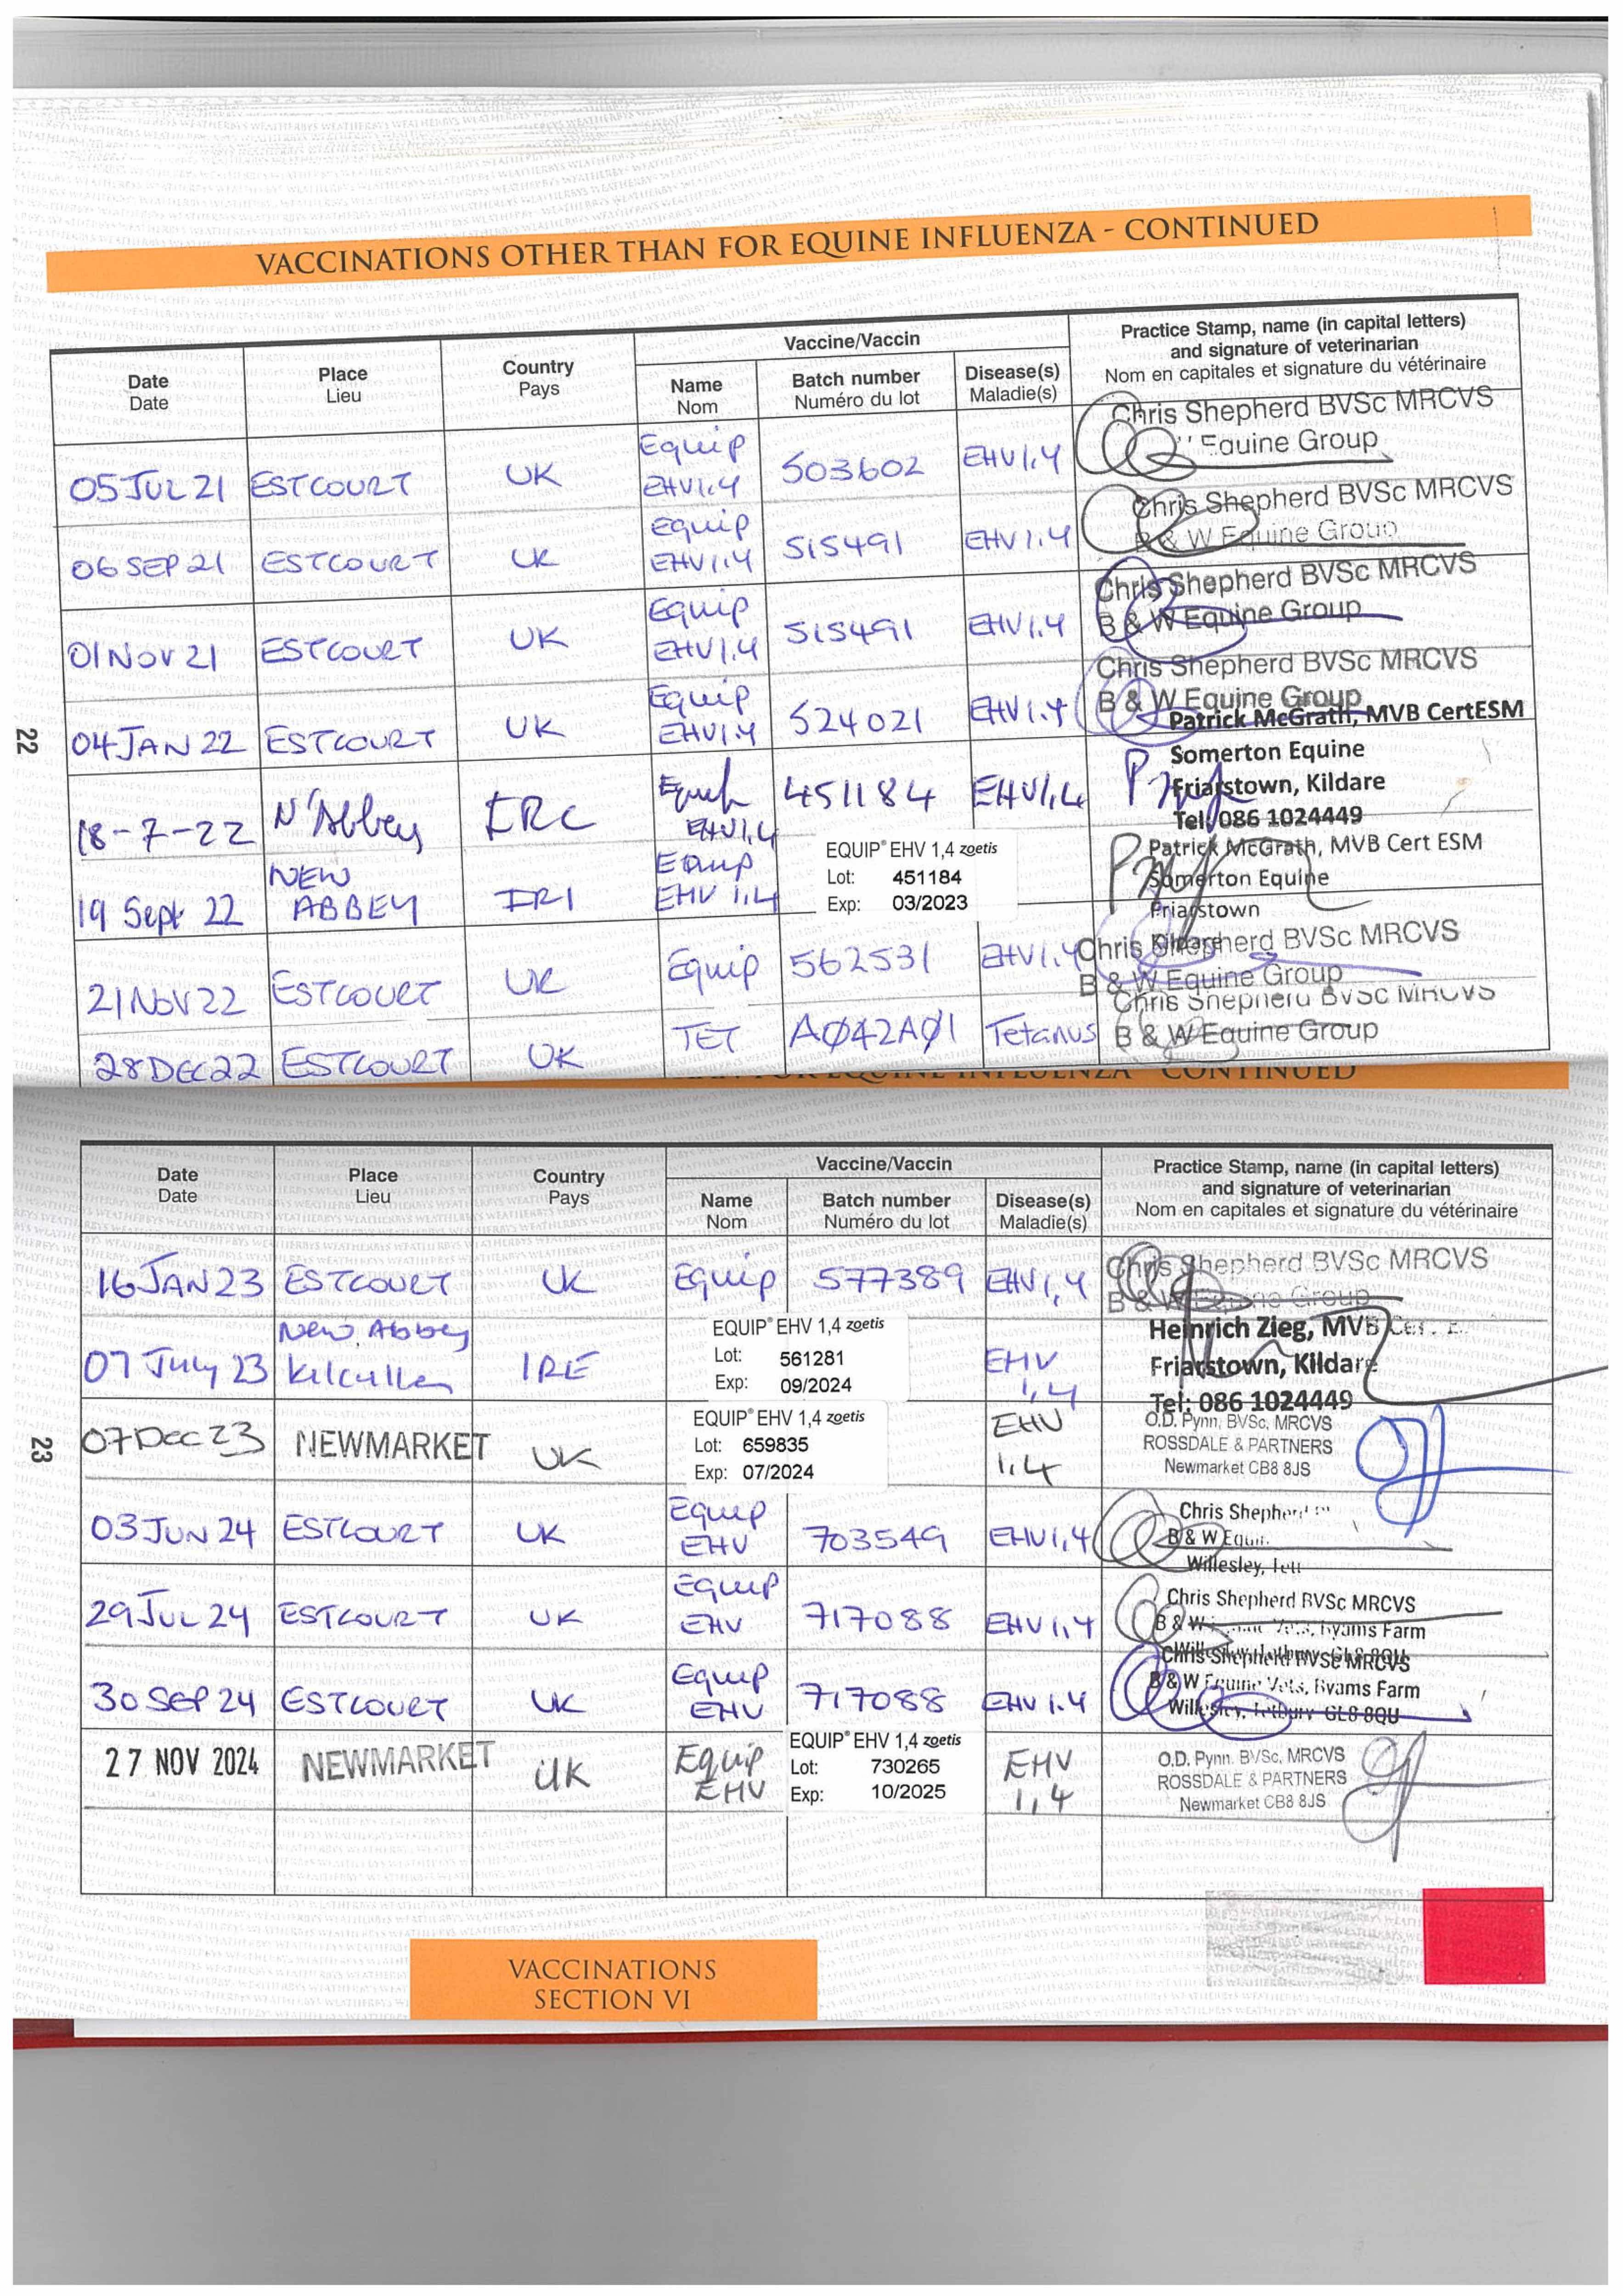 VACCINATIONS OTHER THAN FOR EQUINE INFLUENZA - CONTINUED
Date
Date
Place
Lieu
Country
Pays
Vaccine/Vaccin
Name
Nom
Batch number
Numéro du lot
Disease(s)
Maladie(s)
Practice Stamp, name (in capital letters)
and signature of veterinarian
Nom en capitales et signature du vétérinaire
05 JUL 21 ESTCOURT UK Equip EHV1.4 503602 EHV1.4
Chris Shepherd BVSc MRCVS
Equine Group
06 SEP 21 ESTCOURT UK Equip EHV1.4 515491 EHV1.4
Chris Shepherd BVSc MRCVS
B & W Equine Group
01 NOV 21 ESTCOURT UK Equip EHV1.4 515491 EHV1.4
Chris Shepherd BVSc MRCVS
B & W Equine Group
04 JAN 22 ESTCOURT UK Equip EHV1.4 524021 EHV1.4
Chris Shepherd BVSc MRCVS
B & W Equine Group
18-7-22 N'Abbey EHV1,4 451184 EHV1,4
Patrick McGrath, MVB CertESM
Somerton Equine
Friarstown, Kildare
Tel: 086 1024449
19 Sept 22 NEW ABBEY IRI Equip EHV 1,4
EQUIP® EHV 1,4 zoetis
Lot: 451184
Exp: 03/2023
Patrick McGrath, MVB Cert ESM
Somerton Equine
Friarstown
21 NOV 22 ESTCOURT UK Equip 562531 EHV1.4
Chris Shepherd BVSc MRCVS
B & W Equine Group
28 DEC 22 ESTCOURT UK TET A042A01 Tetanus
Chris Shepherd BVSc MRCVS
B & W Equine Group
22
INFLUENZA - CONTINUED
Date
Date
Place
Lieu
Country
Pays
Vaccine/Vaccin
Name
Nom
Batch number
Numéro du lot
Disease(s)
Maladie(s)
Practice Stamp, name (in capital letters)
and signature of veterinarian
Nom en capitales et signature du vétérinaire
16 JAN 23 ESTCOURT UK Equip 577389 EHV1,4
Chris Shepherd BVSc MRCVS
B & W Equine Group
07 July 23 New Abbey Kilcullen IRE
EQUIP® EHV 1,4 zoetis
Lot: 561281
Exp: 09/2024
EHV 1,4
Heinrich Zieg, MVB
Friarstown, Kildare
Tel: 086 1024449
07 Dec 23 NEWMARKET UK
EQUIP® EHV 1,4 zoetis
Lot: 659835
Exp: 07/2024
EHV 1,4
O.D. Pynn, BVSc, MRCVS
ROSSDALE & PARTNERS
Newmarket CB8 8JS
03 JUN 24 ESTCOURT UK Equip EHV 703549 EHV1,4
Chris Shepherd
B & W
Willesley,
29 JUL 24 ESTCOURT UK Equip EHV 717088 EHV1,4
Chris Shepherd BVSc MRCVS
B & W Byams Farm
30 SEP 24 ESTCOURT UK Equip EHV 717088 EHV1.4
Chris Shepherd BVSc MRCVS
B & W Equine Vets, Byams Farm
Willesley, Tetbury GL8 8QU
27 NOV 2024 NEWMARKET UK Equip EHV
EQUIP® EHV 1,4 zoetis
Lot: 730265
Exp: 10/2025
EHV 1,4
O.D. Pynn, BVSc, MRCVS
ROSSDALE & PARTNERS
Newmarket CB8 8JS
23
VACCINATIONS
SECTION VI